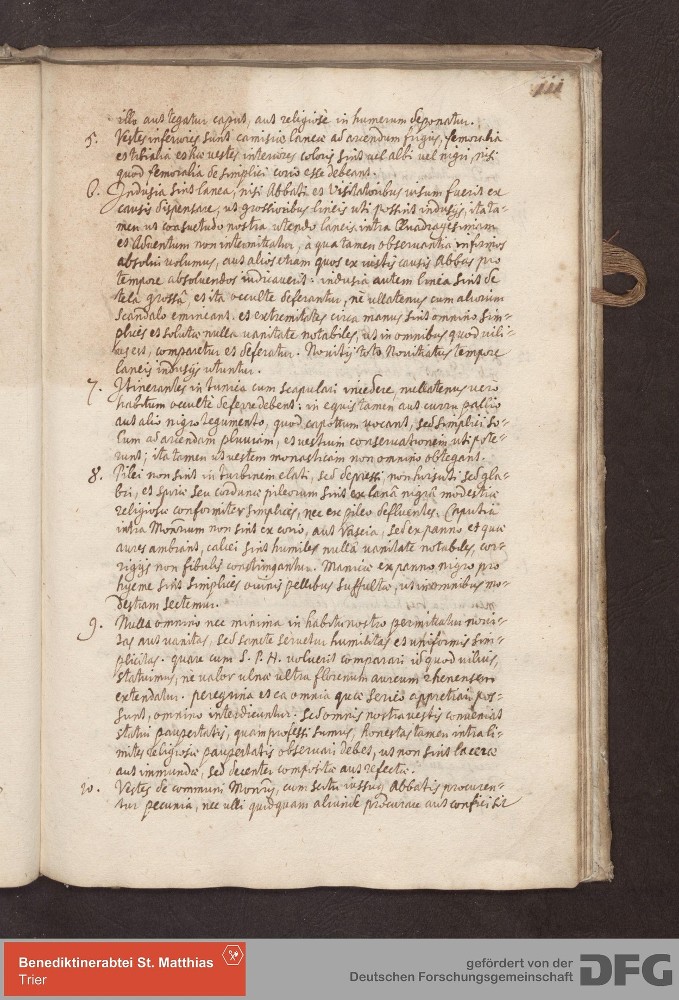 iii
illo aut tegatur caput, aut religiosè in humerum deponatur.
5. Vestes inferiores sunt camisiæ laneæ ad arcendum frigus, femoralia
et tibialia et hæ vestes interiores coloris sint vel albi vel nigri, nisi
quod femoralia de simplici corio esse debeant.
6. Indusia sint lanea, nisi Abbati et Visitatoribus visum fuerit ex
causis dispensare, ut grossioribus lineis uti possint indusijs, ita ta-
men ut consuetudo nostra utendo laneis intra Quadragesimam
et Adventum non intermittatur, à qua tamen observantia infirmos
absolvi volumus, aut alios etiam quos ex iustis causis Abbas pro
tempore absolvendos iudicaverit: indusia autem linea sint de
tela grossâ et ita occultè deferantur, nè ullatenus cum aliorum
scandalo emineant. et extremitates circa manus sint omnino sim-
plices et solutæ nulla vanitate notabiles, ut in omnibus quod vili-
us est, comparetur et deferatur. Novitij toto Novitiatus tempore
laneis indusijs utuntur.
7. Itinerantes in tunica cum scapulari incedere, nullatenus vero
habitum occultè deferre debent: in equis tamen aut curru pallio
aut alio nigro tegumento, quod capottum vocant, sed simplici so-
lum ad arcendam pluviam, et vestium conservationem uti pote-
runt; ita tamen ut vestem monasticam non omnino obtegant.
8. Pilei non sint in turbinem elati, sed depressi, non hirsuti sed gla-
bri, et spiræ seu cordulæ pileorum sint ex lanâ nigrâ modestiæ
religiosæ conformiter simplices, nec ex pileo defluentes. Caputia
intra Monrium non sint ex corio, aut Vascia, sed ex panno et quæ
aures ambiant, calcei sint humiles nullâ vanitate notabiles, cor-
rigijs non fibulis constringantur. Manicæ ex panno nigro pro
hyeme sint simplices ovinis pellibus suffultæ, ut in omnibus mo-
destiam sectemur.
9. Nulla omnino nec minima in habitu nostro permittatur novi-
tas aut vanitas, sed sancte servetur humilitas et uniformis sim-
plicitas. quare cum S. P. N. voluerit comparari id quod vilius,
statuimus, nè valor ulnæ ultra florenum aureum rhenensem
extendatur. peregrina et ea omnia quæ sericò appretiari pos-
sunt, omnino interdicuntur: sed omnis nostra vestis conveniat
statui paupertatis, quam professi sumus, honestas tamen intra li-
mites religiosæ paupertatis observari debet, ut non sint laceræ
aut immundæ, sed decenter compositæ aut refectæ.
10. Vestes de communi Monrij, cum scitu iussuq Abbatis procuren-
tur pecunia, nec ulli quidquam aliunde procurare aut confici sit
Benediktinerabtei St. Matthias
Trier
gefördert von der
Deutschen Forschungsgemeinschaft
DFG